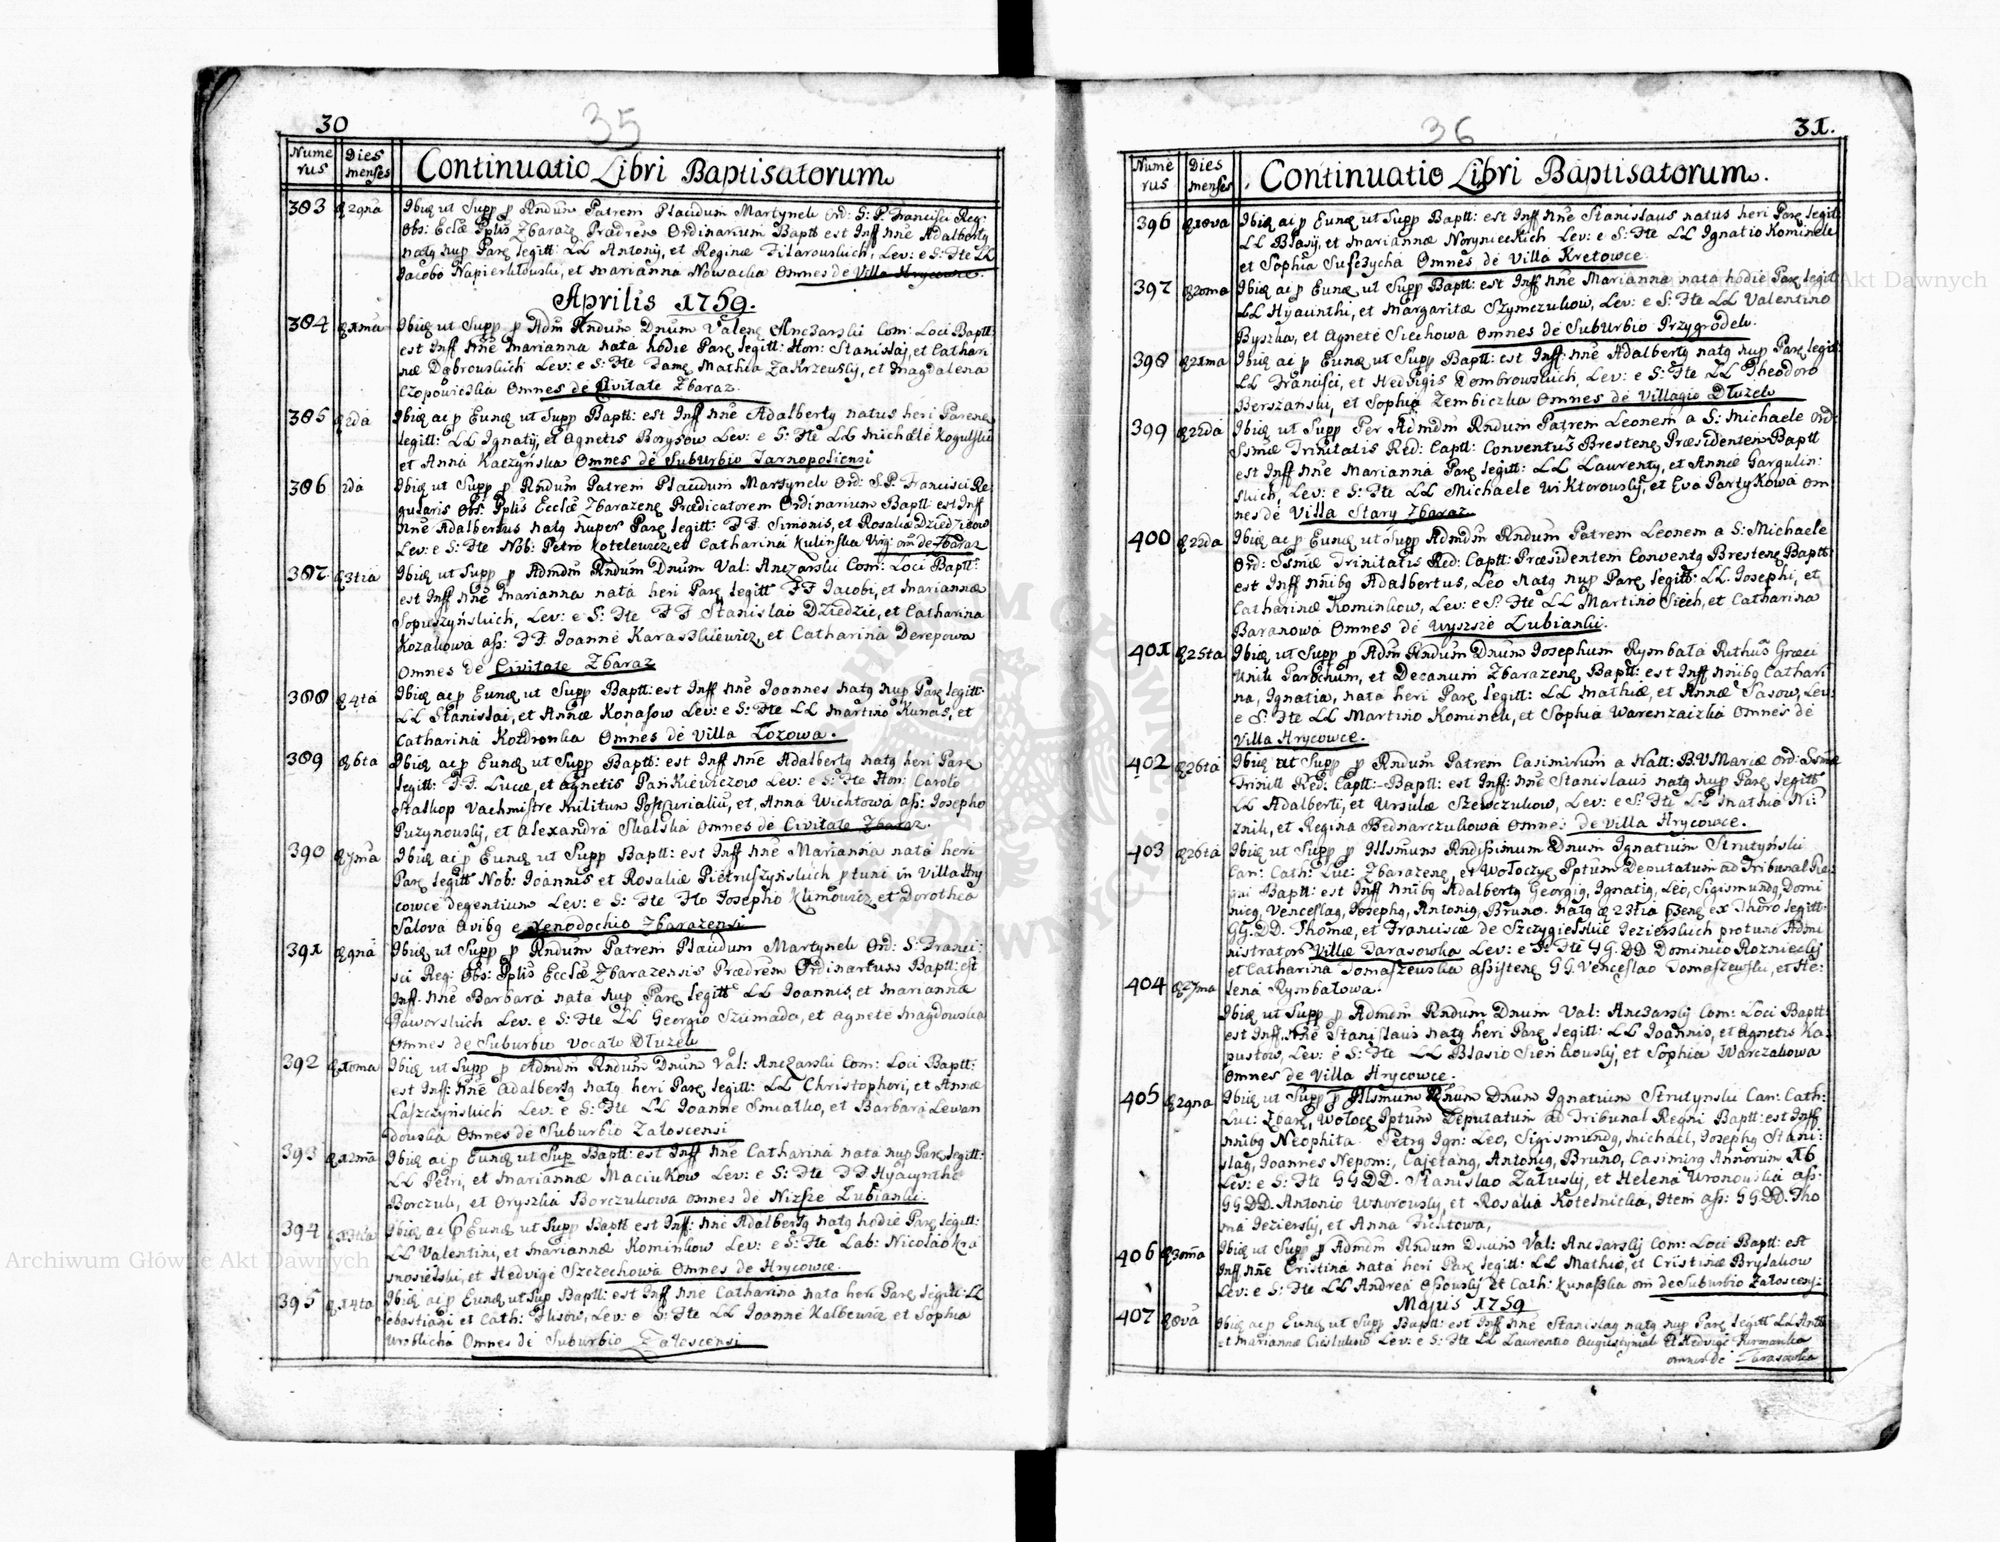 30
35
Numerus
Dies menses
Continuatio Libri Baptisatorum
383 29na Ibid ut Supp p Rndum Patrem Placidum Martynek Ord: S: P. Francisci Reg:
Obs: Eclæ Pplis Zbaraz Prædrem Ordinarium Baptt est Inff nñe Adalbertg
natg nup Par legitt: LL Antonij, et Reginæ Filarouskich, Lev: e S: Fte LL
Jacobo Napierkłouski, et Marianna Nowacka Omnes de Villa Hrycowce.
Aprilis 1759.
384 1ma Ibid ut Supp p Adm Rndum Dnum Valen Anczarski Com: Loci Baptt:
est Inff nñe Marianna nata hodie Par legitt: Hon: Stanislaj, et Cathari
næ Dąbrouskich Lev: e S: Fte Fam Mathia Zakrzevskj, et Magdalena
Czopowiczka Omnes de Civitate Zbaraz.
385 2da Ibid ac p Eund ut Supp Baptt: est Inff nñe Adalbertg natus heri Paren
legitt: LL Ignatij, et Agnetis Borysow Lev: e S: Fte LL Michæle Kogutskie
et Anna Kaczyńska Omnes de Suburbio Tarnopoliensi
386 2da Ibid ut Supp p Rndum Patrem Placidum Martynek Ord: S.P. Francisci Re
gularis Obs: Pplis Ecclæ Zbarazen Prædicatorem Ordinarium Baptt: est Inff
nñe Adalbertus natg nuper Par legitt: FF. Simonis, et Rosaliæ Dziedzicow
Lev: e S: Fte Nob: Petro Kotelewicz, et Catharina Kulinska Virg: om de Zbaraz
387 3tia Ibid ut Supp p Admdm Rndum Dnum Val: Anczarski Com: Loci Baptt:
est Inff nñe Marianna nata heri Par legitt FF Jacobi, et Mariannæ
Sopuszyńskich, Lev: e S: Fte FF Stanislao Dziedzic, et Catharina
Kozakowa ass: FF Joanne Karaszkiewicz, et Catharina Derepowa
Omnes de Civitate Zbaraz
388 4ta Ibid ac p Eund ut Supp Baptt: est Inff nñe Joannes natg nup Par legitt:
LL Stanislai, et Annæ Konasow Lev: e S: Fte LL Martino Kunas, et
Catharina Kozdronka Omnes de Villa Łozowa.
389 6ta Ibid ac p Eund ut Supp Baptt: est Inff nñe Adalbertg natg heri Par
legitt: FF. Lucæ, et Agnetis Pankiewiczow Lev: e S: Fte Hon: Carolo
Stalkop Vachmistre militum Postcurialiu, et, Anna Wichtowa ass: Josepho
Puzynouskj, et Alexandra Skalska Omnes de Civitate Zbaraz.
390 7ma Ibid ac p Eund ut Supp Baptt: est Inff nñe Marianna nata heri
Par legitt Nob: Joannis et Rosaliæ Pietruszyńskich p tunc in Villa Hry
cowce degentium Lev: e S: Fte Flo Josepho Klimowicz, et Dorothea
Salova Avibg e Xenodochio Zbarazensi
391 9na Ibid ut Supp p Rndum Patrem Placidum Martynek Ord: S: Franci:
sci Reg: Obs: Pplis Ecclæ Zbarazensis Prædrem Ordinarium Baptt: est
Inff: nñe Barbara nata nup Par legitt: LL Joannis, et Marianna
Jaworskich Lev: e S: Fte LL Georgio Szumada, et Agnete Magdowska
Omnes de Suburbio Vocato Dłuzek
392 10ma Ibid ut Supp p Admdm Rndum Dnum Val: Anczarski Com: Loci Baptt:
est Inff: nñe Adalbertg natg heri Par legitt: LL Christophori, et Annæ
Łaszczyńskich Lev: e S: Fte LL Joanne Smiałko, et Barbara Lewan
douska Omnes de Suburbio Załoscensi
393 12ma Ibid ac p Eund ut Sup Baptt: est Inff nñe Catharina nata nup Par legitt:
LL Petri, et Mariannæ Maciukow Lev: e S: Fte FF Hyacyntho
Borczuk, et Oryszka Borczukowa Omnes de Niższe Łubianki.
394 13tia Ibid ac p Eund ut Supp Baptt est Inff: nñe Adalbertg natg hodie Par legitt:
LL Valentini, et Mariannæ Kominkow Lev: e S: Fte Lab: Nicolao Kra
snosielski, et Hedvige Szczechowa Omnes de Hrycowce.
395 14ta Ibid ac p Eund ut Sup Baptt: est Inff nñe Catharina nata heri Par legitt: LL
Sebastiani et Cath: Ilisow, Lev: e S: Fte LL Joanne Kalbewicz et Sophia
Wroblicha Omnes de Suburbio Załoscensi
36
31.
Numerus
Dies menses
Continuatio Libri Baptisatorum.
396 18va Ibid ac p Eund ut Supp Baptt: est Inff nñe Stanislaus natus heri Par legitt
LL Blasij, et Mariannæ Noryniecckich Lev: e S: Fte LL Ignatio Kominek
et Sophia Suszczycha Omnes de Villa Kretowce
397 20ma Ibid ac p Eund ut Supp Baptt: est Inff nñe Marianna nata hodie Par legitt
LL Hyacinthi, et Margaritæ Szymczukow, Lev: e S: Fte LL Valentino
Byszka, et Agnete Siechowa Omnes de Suburbio Przygrodek.
398 21ma Ibid ac p Eund ut Supp Baptt: est Inff: nñe Adalbertg natg nup Par legitt:
LL Francisci, et Hedvigis Dombrowskich, Lev: e S: Fte LL Theodoro
Berszanski, et Sophia Zembiczka Omnes de Villagio Dłuzek
399 22da Ibid ut Supp Per Admdm Rndum Patrem Leonem a S: Michaele Ord:
Ssmæ Trinitatis Red: Captt: Conventus Bresten Præsidentem Baptt
est Inff nñe Marianna Par legitt: LL Laurenty, et Annæ Gargulin:
skich, Lev: e S: Fte LL Michaele Wiktorouskj, et Eva Partykowa Om
nes de Villa Stary Zbaraz
400 22da Ibid ac p Eund ut Supp Admdm Rndum Patrem Leonem a S: Michaele
Ord: Ssmæ Trinitatis Red: Captt: Præsidentem Conventg Bresten Baptt:
est Inff nñibg Adalbertus, Leo natg nup Par legitt: LL. Josephi, et
Catharinæ Kominkow, Lev: e S: Fte LL Martino Siech, et Catharina
Baranowa Omnes de Wyszsze Łubianki.
401 25ta Ibid ut Supp p Adm Rndum Dnum Josephum Rymbała Ruthus Græci
Uniti Parochum, et Decanum Zbarazen, Baptt: est Inff nñibg Cathari
na, Ignatia, nata heri Par legitt: LL Mathiæ, et Annæ Sasow, Lev:
e S: Fte LL Martino Kominek, et Sophia Warenzaizka Omnes de
Villa Hrycowce.
402 26ta Ibid ut Supp p Rndum Patrem Casimirum a Natt: B.V Mariæ Ord: Ssmæ
Trinitt Red: Captt: Baptt: est Inff: nñe Stanislaus natg nup Par legitt
LL Adalberti, et Ursulæ Szewczukow, Lev: e S: Fte LL Mathia Ni:
znik, et Regina Bednarczukowa Omnes de Villa Hrycowce.
403 26ta Ibid ut Supp p Illsmum Rndissimum Dnum Ignatium Strutyński
Can: Cath: Luc: Zbarazen, et Wołoczys Pptum Deputatum ad Tribunal Re:
gni Baptt: est Inff nñibg Adalbertg Georgig, Ignatig, Leo, Sigismundg, Domi
nicg, Venceslag, Josephg, Antonig, Bruno. natg 23tia ex Thoro legitt:
GG.DD. Thomæ, et Franciscæ de Szczygielskie Jezierskich pro tunc Admi
nistrator Villæ Tarasowka Lev: e S: Fte GG. DD Dominico Roznieckj
et Catharina Tomaszewska assisten GG. Venceslao Tomaszewski, et He:
lena Rymbałowa.
404 27ma Ibid ut Supp p Admdm Rndum Dnum Val: Anczarskj Com: Loci Baptt:
est Inff: nñe Stanislaus natg heri Par legitt: LL Joannis, et Agnetis Ka
pustow, Lev: e S: Fte LL Blasio Sienkiouskj, et Sophia Warczakowa
Omnes de Villa Hrycowce.
405 29na Ibid ut Supp p Illsmum Rnum Dnum Ignatium Strutynski Can: Cath:
Luc: Zbar, Wołocz Pptum Deputatum ad Tribunal Regni Baptt: est Inff
nñibg Neophita Petrg Ign: Leo, Sigismundg, Michael, Josephg Stani:
slag, Joannes Nepom:, Cajetang, Antonig, Bruno, Casimirg Annorum 16
Lev: e S: Fte GG DD. Stanislao Załuskj, et Helena Wronouska ass:
GG DD. Antonio Wnurouskj, et Rosalia Kotesnicka, Item ass: GG DD. Tho
ma Jezierskj, et Anna Fichtowa,
406 30ma Ibid ut Supp p Admdm Rndum Dnum Val: Anczarskj Com: Loci Baptt: est
Inff nñe Cristina nata heri Par legitt: LL Mathiæ, et Cristinæ Brysakow
Lev: e S: Fte LL Andrea et Cath: Kunaszka om de Suburbio Załoscens.
Majus 1759
407 8va Ibid ac p Eund ut Supp Baptt: est Inff nñe Stanislag natg nup Par legitt LL Antt
et Mariannæ Ciesłukow Lev: e S: Fte LL Laurentio Augustyniak et Hedvige Furmanka
omnes de Tarasowka
Archiwum Główne Akt Dawnych
Akt Dawnych